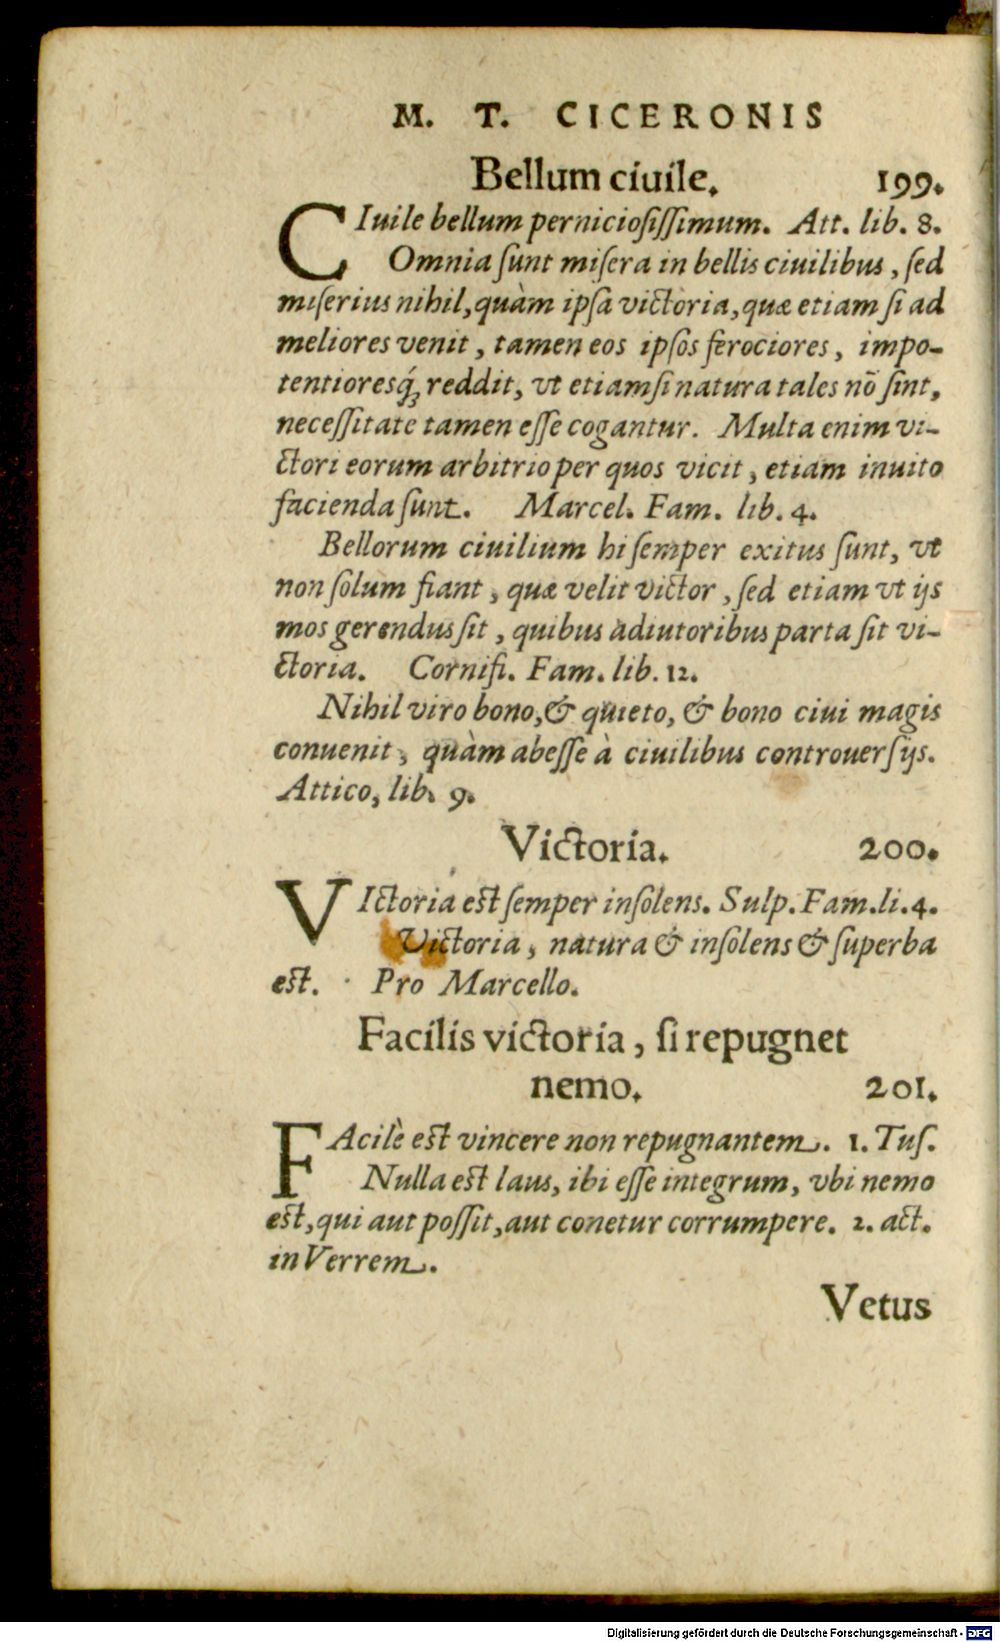 M. T. CICERONIS
Bellum ciuile. 199.
CIuile bellum perniciosißimum. Att. lib. 8.
Omnia ſunt miſera in bellis ciuilibus, ſed
miſerius nihil, quàm ipſa victoria, quæ etiam ſi ad
meliores venit, tamen eos ipſos ferociores, impo-
tentioresq́; reddit, vt etiamſi natura tales nõ ſint,
neceſſitate tamen eſſe cogantur. Multa enim vi-
ctori eorum arbitrio per quos vicit, etiam inuito
facienda ſunt. Marcel. Fam. lib. 4.
Bellorum ciuilium hi ſemper exitus ſunt, vt
non ſolum fiant, quæ velit victor, ſed etiam vt ijs
mos gerendus ſit, quibus adiutoribus parta ſit vi-
ctoria. Cornifi. Fam. lib. 12.
Nihil viro bono, & quieto, & bono ciui magis
conuenit, quàm abeſſe à ciuilibus controuerſijs.
Attico, lib. 9.
Victoria. 200.
VIctoria est ſemper inſolens. Sulp. Fam. li. 4.
Victoria, natura & inſolens & ſuperba
est. Pro Marcello.
Facilis victoria, ſi repugnet
nemo. 201.
FAcilè est vincere non repugnantem. 1. Tuſ.
Nulla est laus, ibi eſſe integrum, vbi nemo
est, qui aut poſſit, aut conetur corrumpere. 2. act.
in Verrem.
Vetus
Digitalisierung gefördert durch die Deutsche Forschungsgemeinschaft - DFG